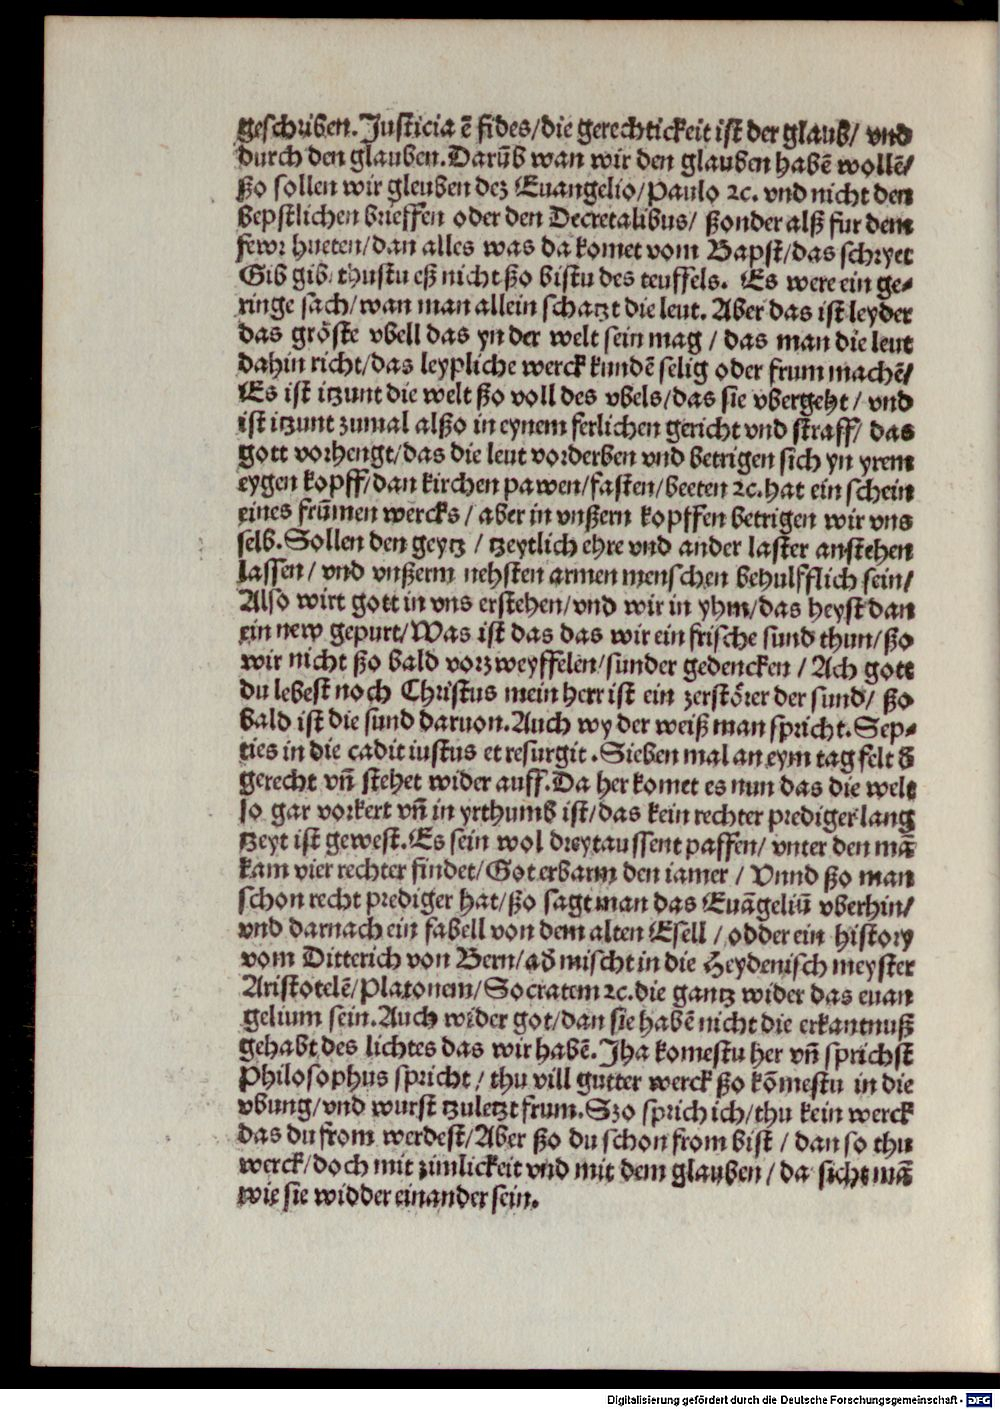 geschriben. Justicia ē fides/die gerechtickeit ist der glaub/ vnd
durch den glauben. Darūb wan wir den glauben habē wollē/
ßo sollen wir gleuben dez Euangelio/Paulo ꝛc. vnd nicht den
bepstlichen brieffen oder den Decretalibus/ ßonder alß fur dem
fewr hueten/dan alles was da komet vom Bapst/das schryet
Gib gib/ thustu eß nicht ßo bistu des teuffels. Es were ein ge-
ringe sach/wan man allein schatzt die leut. Aber das ist leyder
das gröste vbell das yn der welt sein mag / das man die leut
dahin richt/das leypliche werck kundē selig oder frum machē/
Es ist itzunt die welt ßo voll des vbels/das sie vbergeht/ vnd
ist itzunt zumal alßo in eynem ferlichen gericht vnd straff/ das
gott vorhengt/das die leut vorderben vnd betrigen sich yn yrem
eygen kopff/dan kirchen pawen/fasten/beeten ꝛc. hat ein schein
eines frūmen wercks / aber in vnßern kopffen betrigen wir vns
selb. Sollen den geytz / tzeytlich ehre vnd ander laster anstehen
lassen / vnd vnßerm nehsten armen menschen behulfflich sein/
Also wirt gott in vns erstehen/vnd wir in yhm/das heyst dan
ein new gepurt/Was ist das das wir ein frische sund thun/ßo
wir nicht ßo bald vorzweyffelen/sunder gedencken / Ach gott
du lebest noch Christus mein herr ist ein zerstörer der sund/ ßo
bald ist die sund daruon. Auch wy der weiß man spricht. Sep-
ties in die cadit iustus et resurgit. Sieben mal an eym tag felt ď
gerecht vñ stehet wider auff. Da her komet es nun das die welt
so gar vorkert vñ in yrthumb ist/das kein rechter prediger lang
tzeyt ist gewest. Es sein wol dreytaussent paffen/ vnter den mā
kam vier rechter findet/Got erbarm den iamer / Vnnd ßo man
schon recht prediger hat/ßo sagt man das Euāgeliū vberhin/
vnd darnach ein fabell von dem alten Esell / odder ein history
vom Ditterich von Bern/aď mischt in die Heydenisch meyster
Aristotelē/Platonem/Socratem ꝛc. die gantz wider das euan
gelium sein. Auch wider got/dan sie habē nicht die erkantnuß
gehabt des lichtes das wir habē. Jha komestu her vñ sprichst
Philosophus spricht / thu vill gutter werck ßo kōmestu in die
vbung/vnd wurst tzuletzt frum. Szo sprich ich/thu kein werck
das du from werdest/Aber ßo du schon from bist / dan so thu
werck/doch mit zimlickeit vnd mit dem glauben / da sicht mā
wie sie widder einander sein.
Digitalisierung gefördert durch die Deutsche Forschungsgemeinschaft - DFG